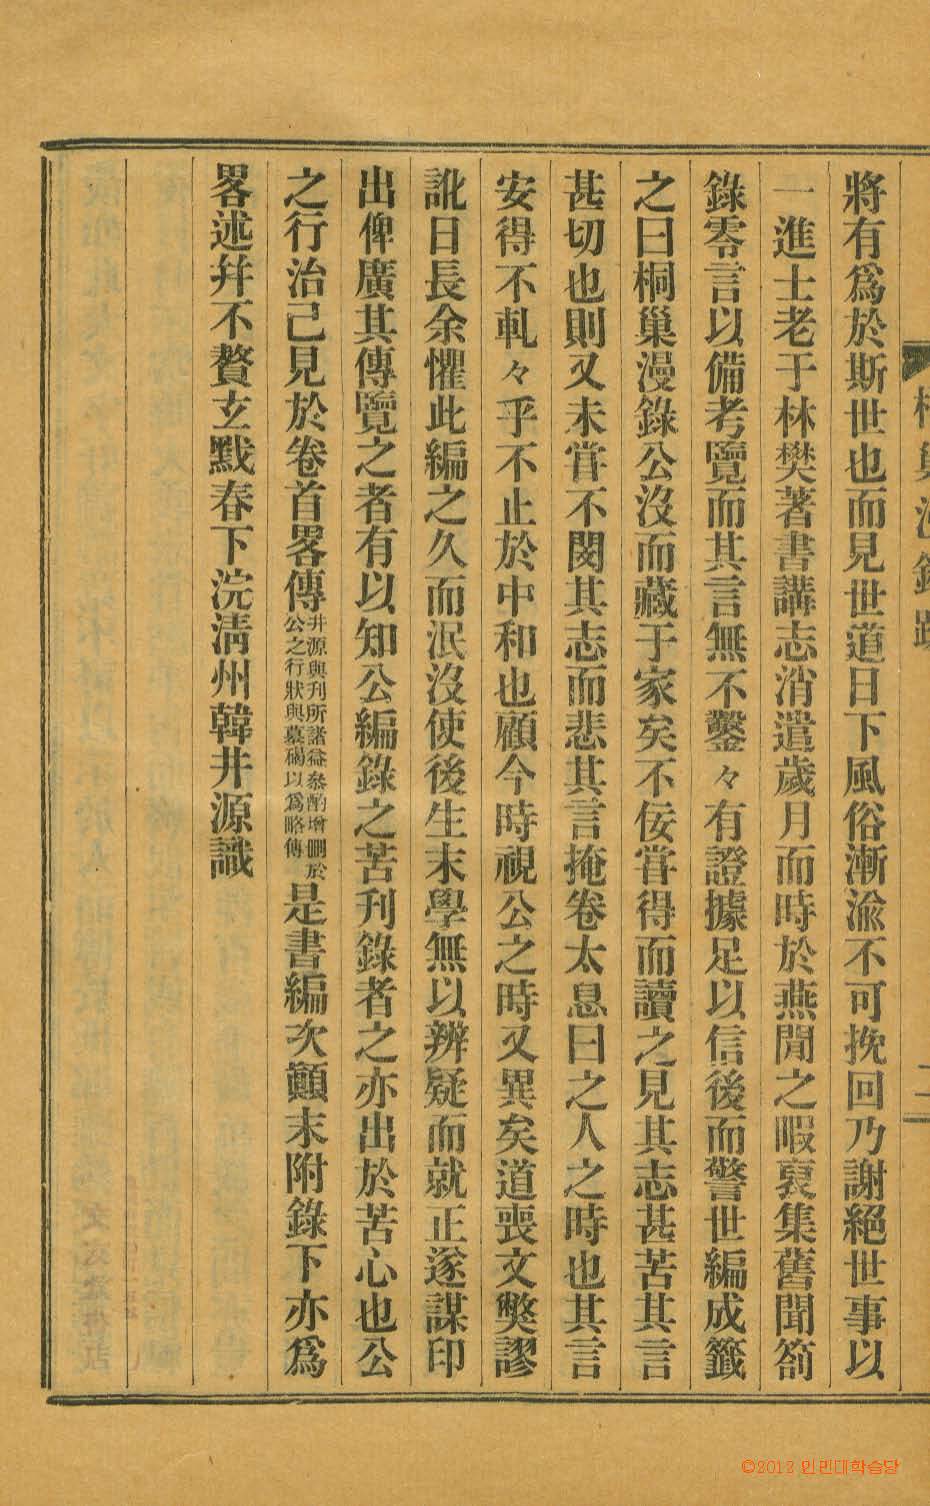 將有爲於斯世也而見世道日下風俗漸渝不可挽回乃謝絕世事以
一進士老于林樊著書講志消遣歲月而時於燕閒之暇裒集舊聞箚
錄零言以備考覽而其言無不鑿々有證據足以信後而警世編成籤
之曰桐巢漫錄公沒而藏于家矣不佞嘗得而讀之見其志甚苦其言
甚切也則又未甞不閔其志而悲其言掩卷太息曰之人之時也其言
安得不軋々乎不止於中和也顧今時視公之時又異矣道喪文獘謬
訛日長余懼此編之久而泯沒使後生末學無以辨疑而就正遂謀印
出俾廣其傳覽之者有以知公編錄之苦刊錄者之亦出於苦心也公
之行治已見於卷首畧傳
井源與刊所諸益叅酌增刪於
公之行狀與墓碣以爲略傳
是書編次顚末附錄下亦爲
畧述幷不贅玄黓春下浣淸州韓井源識
漫錄跋
二
©2012 인민대학습당